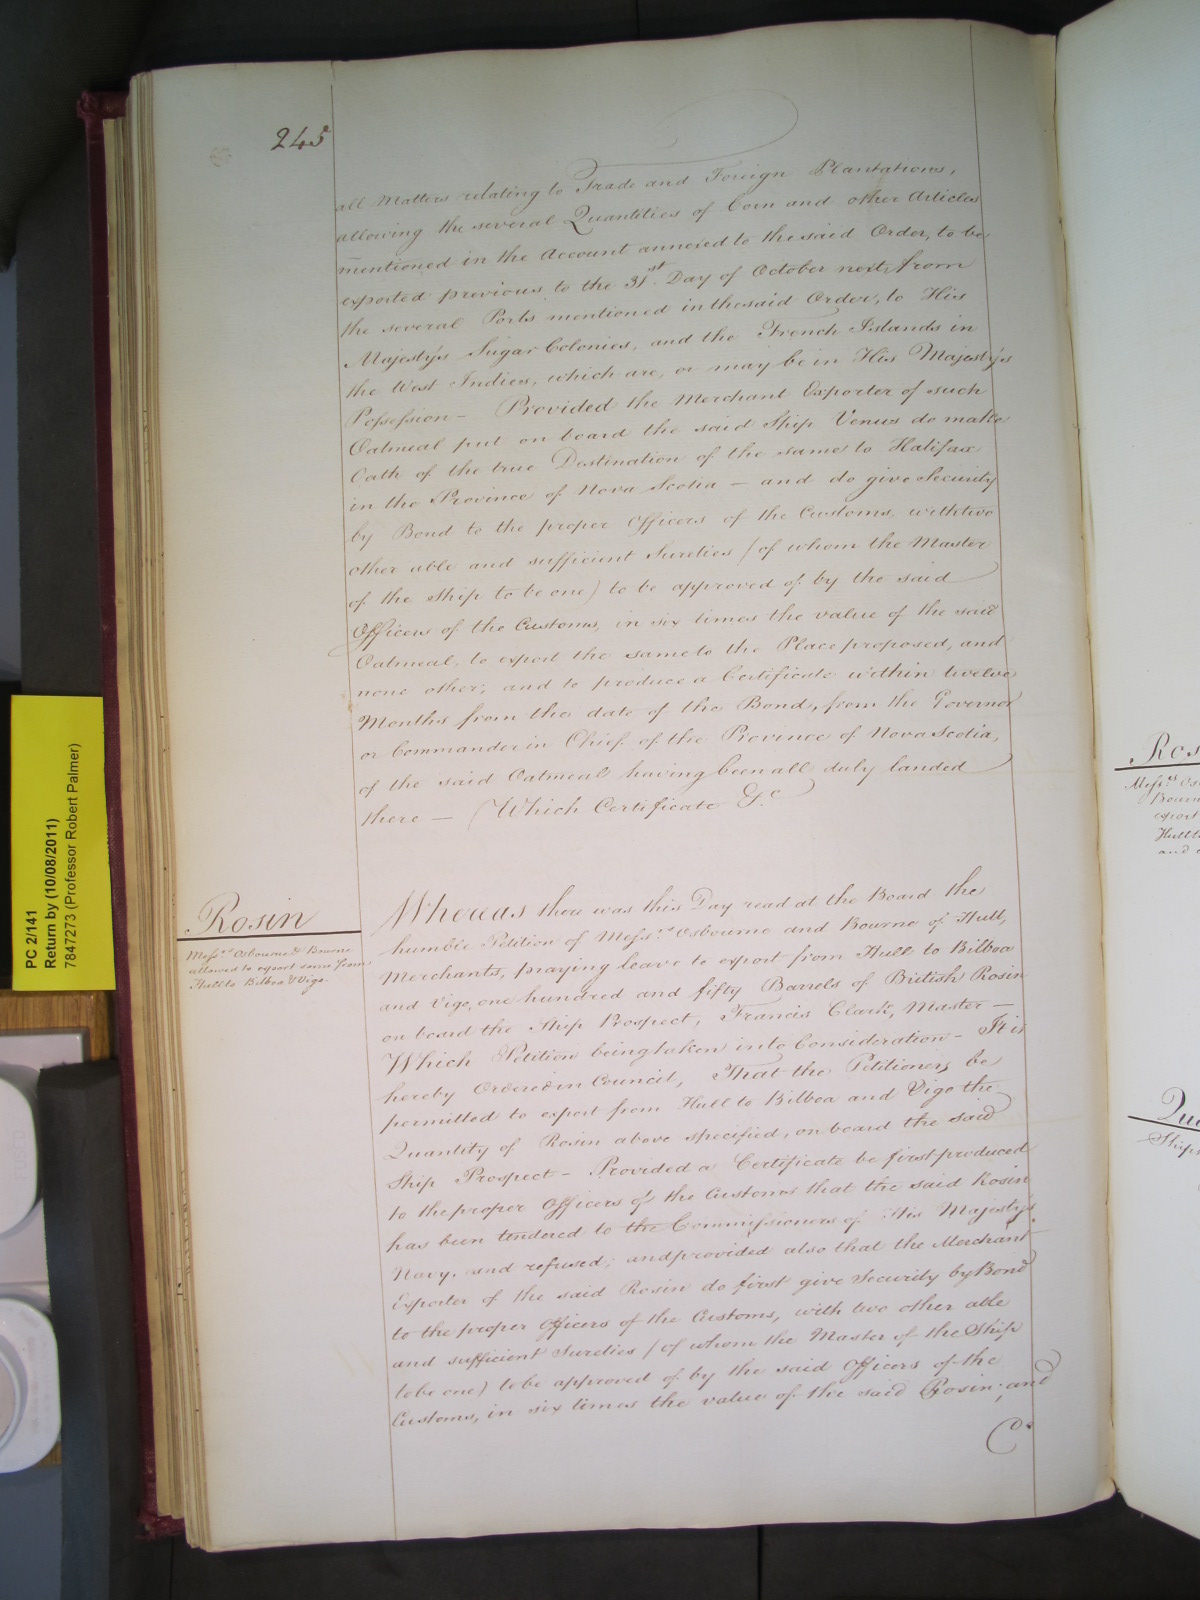 245
all Matters relating to Trade and Foreign Plantations,
allowing the several Quantities of Corn and other Articles
mentioned in the Account annexed to the said Order, to be
exported previous to the 31st Day of October next, from
the several Ports mentioned in the said Order, to His
Majesty's Sugar Colonies, and the French Islands in
the West Indies, which are, or may be in His Majesty's
Possession - Provided the Merchant Exporter of such
Oatmeal put on board the said Ship Venus do make
Oath of the true Destination of the same to Halifax
in the Province of Nova Scotia - and do give Security
by Bond to the proper Officers of the Customs, with two
other able and sufficient Sureties (of whom the Master
of the Ship to be one) to be approved of by the said
Officers of the Customs, in six times the value of the said
Oatmeal, to export the same to the Place proposed, and
none other; and to produce a Certificate within twelve
Months from the date of the Bond, from the Governor
or Commander in Chief of the Province of Nova Scotia,
of the said Oatmeal having been all duly landed
there - (Which Certificate &c
Rosin
Messrs Osbourne & Bourne
allowed to export some from
Hull to Bilboa & Vigo.
Whereas there was this Day read at the Board the
humble Petition of Messrs Osbourne and Bourne of Hull,
Merchants, praying leave to export from Hull to Bilboa
and Vigo, one hundred and fifty Barrels of British Rosin
on board the Ship Prospect, Francis Clark, Master -
Which Petition being taken into Consideration - It is
hereby Ordered in Council, That the Petitioners be
permitted to export from Hull to Bilboa and Vigo the
Quantity of Rosin above specified, on board the said
Ship Prospect - Provided a Certificate be first produced
to the proper Officers of the Customs that the said Rosin
has been tendered to the Commissioners of His Majesty's
Navy, and refused; and provided also that the Merchant
Exporter of the said Rosin do first give Security by Bond
to the proper Officers of the Customs, with two other able
and sufficient Sureties (of whom the Master of the Ship
to be one) to be approved of by the said Officers of the
Customs, in six times the value of the said Rosin; and
PC 2/141
Return by (10/08/2011)
7847273 (Professor Robert Palmer)